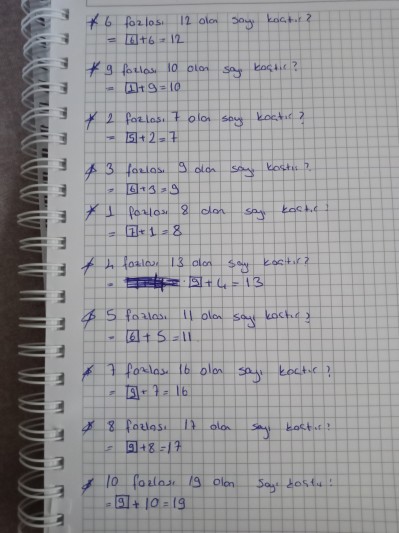 * 6 fazlası 12 olan sayı kaçtır?
= 6+6=12
* 9 fazlası 10 olan sayı kaçtır?
= 1+9=10
* 2 fazlası 7 olan sayı kaçtır?
= 5+2=7
* 3 fazlası 9 olan sayı kaçtır?
= 6+3=9
* 1 fazlası 8 olan sayı kaçtır?
= 7+1=8
* 4 fazlası 13 olan sayı kaçtır?
= 9+4=13
* 5 fazlası 11 olan sayı kaçtır?
= 6+5=11
* 7 fazlası 16 olan sayı kaçtır?
= 9+7=16
* 8 fazlası 17 olan sayı kaçtır?
= 9+8=17
* 10 fazlası 19 olan sayı kaçtır?
= 9+10=19